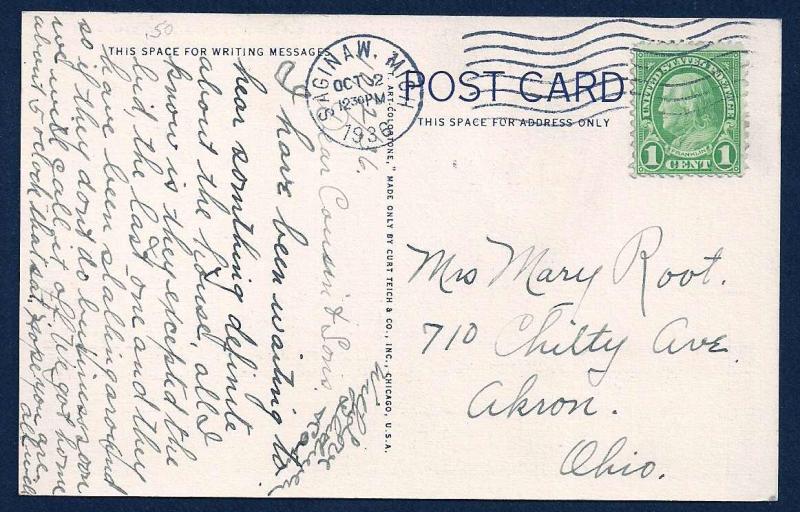 50
THIS SPACE FOR WRITING MESSAGES
SAGINAW, MICH
OCT 2
12 30 PM
1936
POST CARD
THIS SPACE FOR ADDRESS ONLY
UNITED STATES POSTAGE
FRANKLIN
1 CENT 1
ART-COLORTONE," MADE ONLY BY CURT TEICH & CO., INC., CHICAGO, U.S.A.
Dear Cousin & Sons.
I have been waiting to
hear somthing definite
about the house, all I
know is they excepted the
bid the last one and they
have been stalling around
so if they dont do buisness soon
we will call it off. We got home
about 6 o'clock that sat. Hope you are
all well
Mrs Mary Root.
710 Chitty Ave.
Akron.
Ohio.